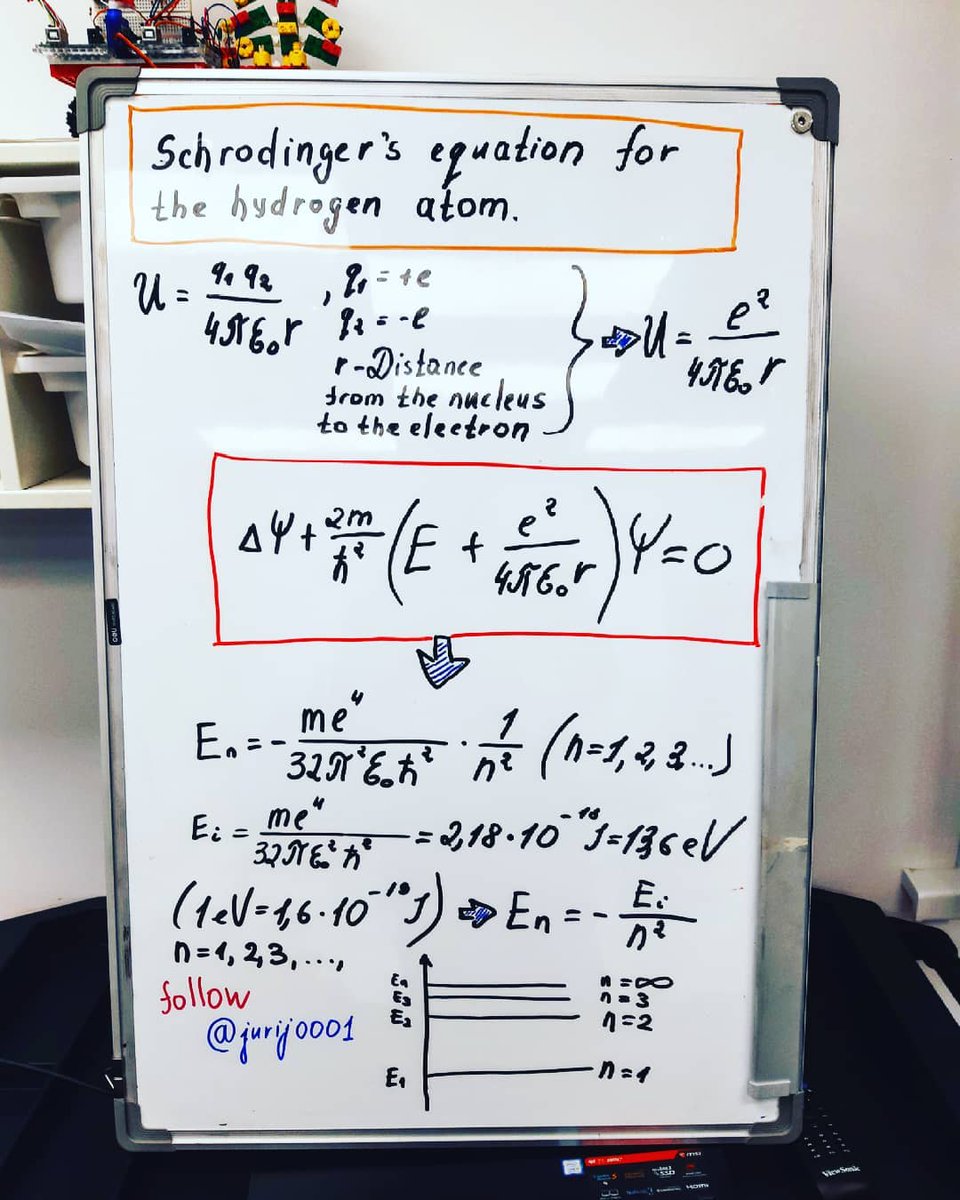 Schrodinger's equation for
the hydrogen atom.
U = q₁ q₂ / 4πε₀r , q₁ = +e
q₂ = -e
r - Distance
from the nucleus
to the electron
⇒ U = e² / 4πε₀r
Δψ + 2m/ħ² (E + e² / 4πε₀r) ψ = 0
Eₙ = - me⁴ / 32π²ε₀ħ² · 1/n² (n=1, 2, 3...)
Eᵢ = me⁴ / 32πε₀²ħ² = 2,18·10⁻¹⁸ J = 13,6 eV
(1eV = 1,6·10⁻¹⁹ J) ⇒ Eₙ = - Eᵢ / n²
n = 1, 2, 3, ...,
follow
@jurij0001
n = ∞
E₃ n = 3
E₂ n = 2
E₁ n = 1
deli
ViewSonic
msi
HDMI